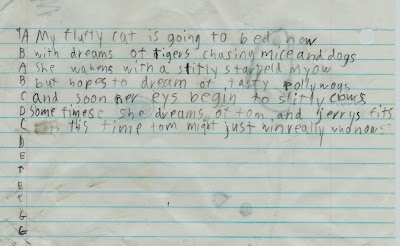 A My fluffy cat is going to bed now
B with dreams of tigers chasing mice and dogs
A she wakens with a stifly starteld myow
B but hopes to dream of tasty pollywogs
C and soon her eys begin to slitly
D Some timese she dreams of tom and jerrys fits
C this time tom might just win really who nows
D
E
F
E
F
G
G